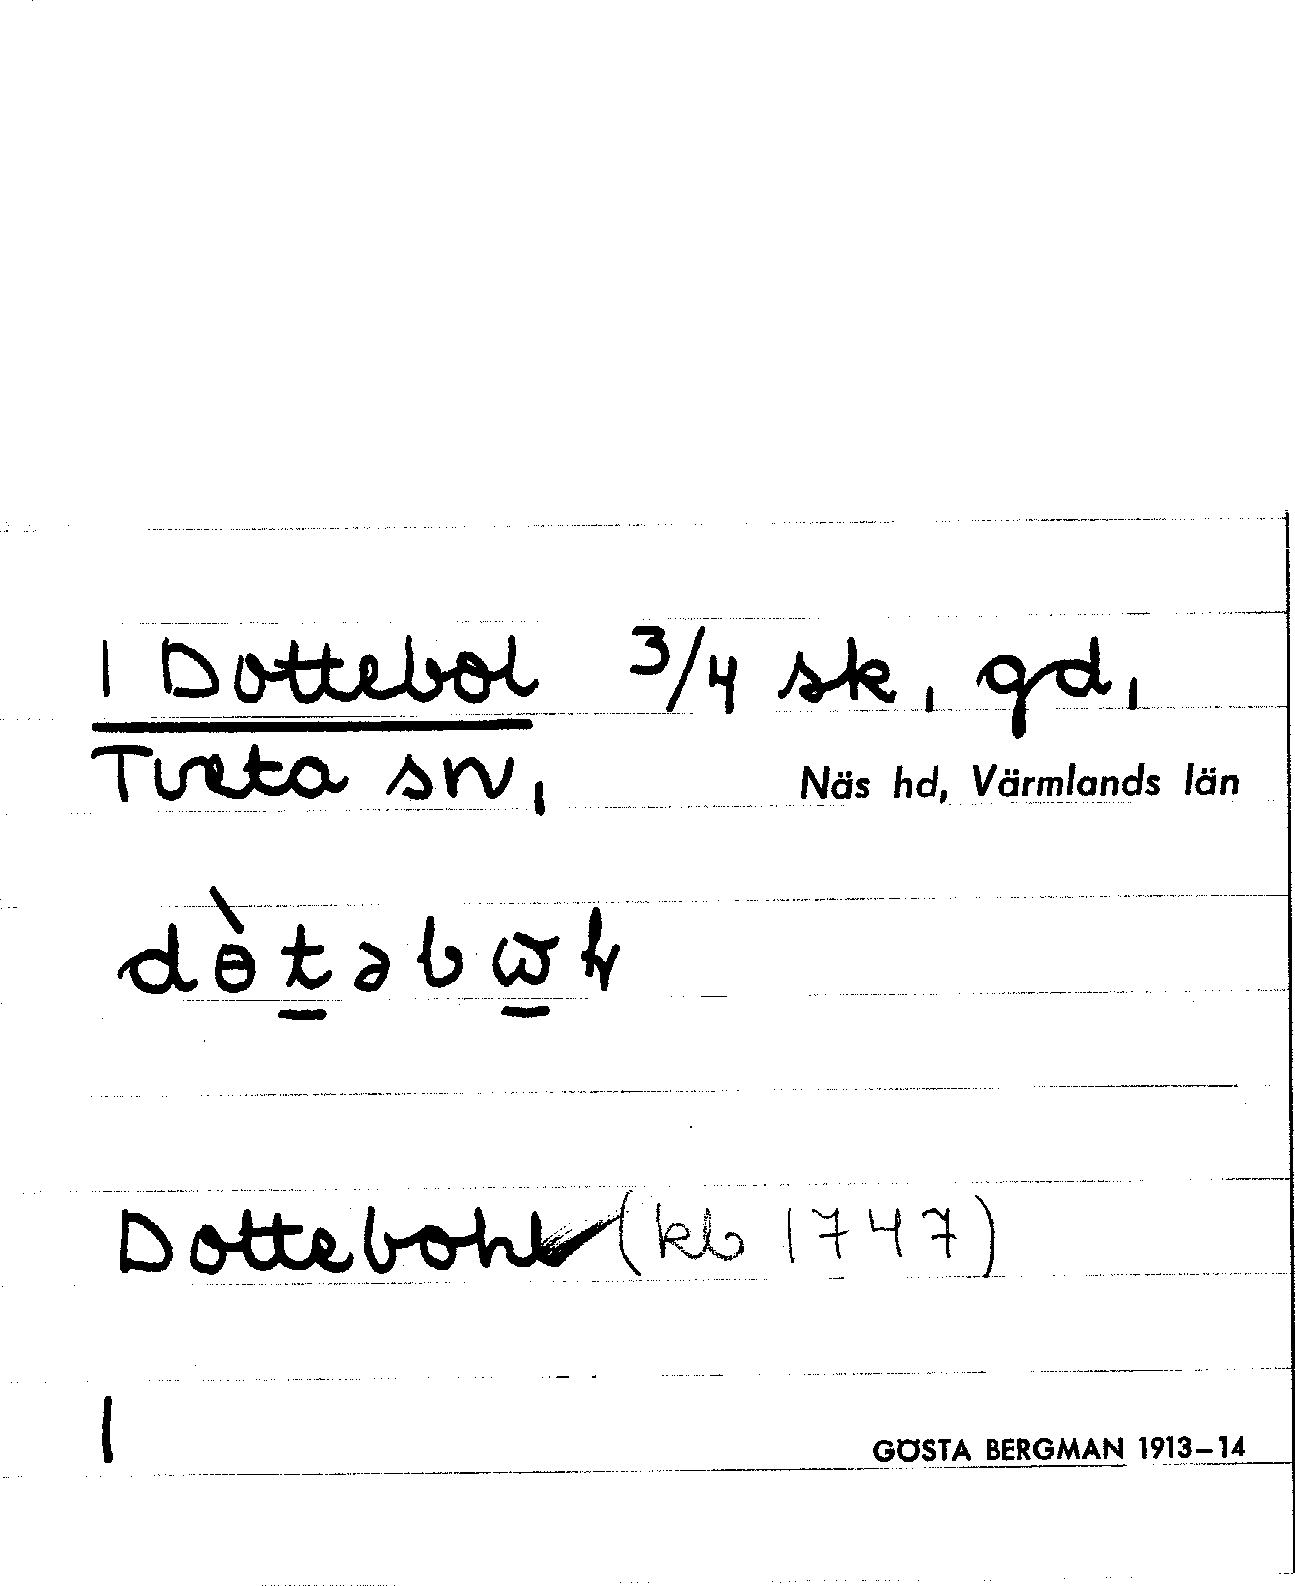 1 Dottebol 3/4 sk, gd,
Tveta sn, Näs hd, Värmlands län
dɵ̀t̠əbω̠ɫ
Dottebohl (kb 1747)
1
GÖSTA BERGMAN 1913–14